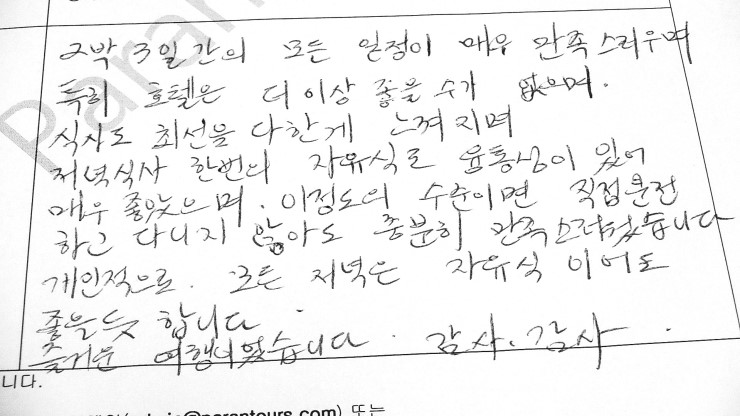 2박 3일간의 모든 일정이 매우 만족스러우며
특히 호텔은 더이상 좋을 수가 없으며.
식사도 최선을 다한게 느껴지며
저녁식사 한번의 자유식도 융통성이 있어
매우 좋았으며. 이정도의 수준이면 직접운전
하고 다니지 않아도 충분히 만족스러웠습니다
개인적으로. 모든 저녁은 자유식 이어도
좋을듯 합니다.
즐거운 여행이었습니다. 감사. 감사.
니다.
parantours.com) 또는